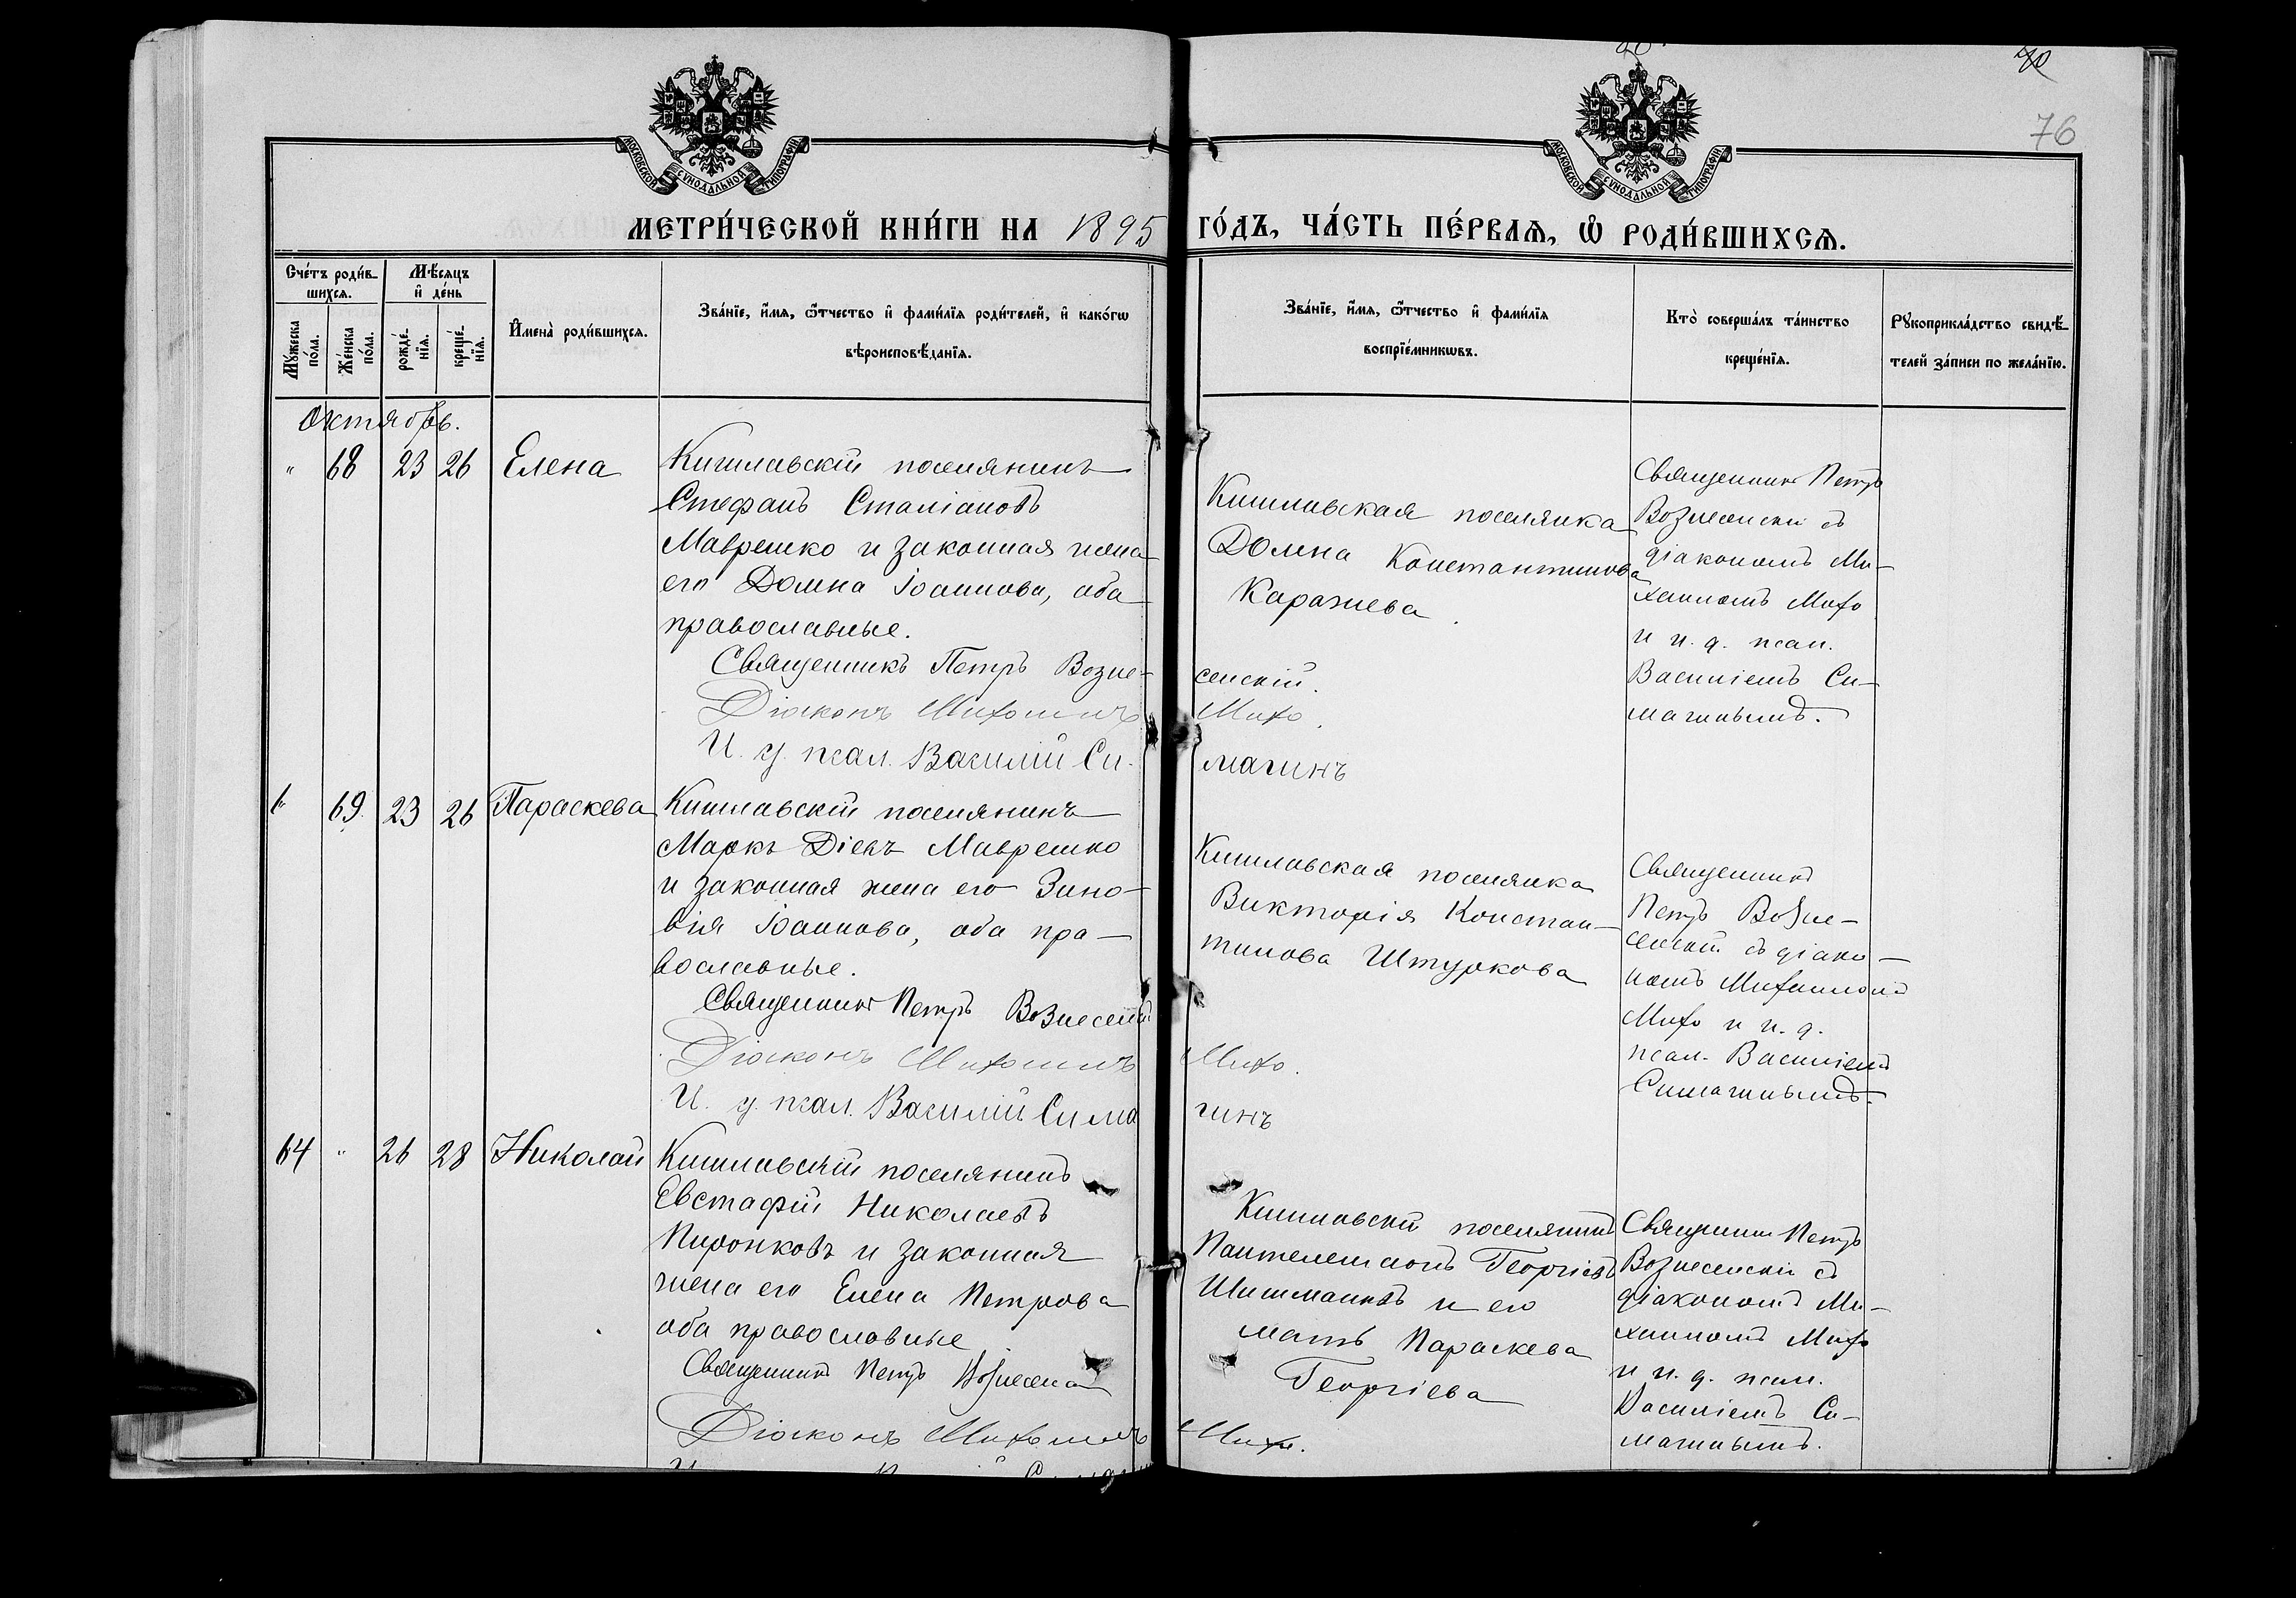 МОСКОВСКОЙ СУНОДАЛЬНОЙ ТИПОГРАФІИ
МОСКОВСКОЙ СУНОДАЛЬНОЙ ТИПОГРАФІИ
76
МЕТРИ́ЧЕСКОЙ КНИ́ГИ НА 1895 ГО́ДЪ, ЧА́СТЬ ПЕ́РВАѦ, Ѡ҆ РОДИ́ВШИХСѦ.
Сче́тъ роди́в-
шихсѧ.
Мꙋ́жеска
по́ла.
Же́нска
по́ла.
Мѣ́сѧцъ
и҆ де́нь
рожде́-
нїѧ.
креще́-
нїѧ.
И҆мена̀ роди́вшихсѧ.
Зва́нїе, и҆́мѧ, ѻ҆́тчество и҆ фами́лїѧ роди́телей, и҆ како́гѡ
вѣроисповѣ́данїѧ.
Зва́нїе, и҆́мѧ, ѻ҆́тчество и҆ фами́лїѧ
воспрїе́мникѡвъ.
Кто̀ соверша́лъ та́инство
креще́нїѧ.
Рꙋкоприкла́дство свидѣ́-
телей за́писи по жела́нїю.
Октябрь.
" 68 23 26 Елена
Кишлавскій поселянинъ
Стефанъ Сталіановъ
Маврешко и законная жена
его Домна Іоаннова, оба
православные.
Священникъ Петръ Возне-
сенскій.
Діаконъ Михаилъ Михо.
И. д. псал. Василій Си-
магинъ
Кишлавская поселянка
Домна Константинова
Каражева
Священникъ Петръ
Вознесенскій съ
діакономъ Ми-
хаиломъ Михо
и и. д. псал.
Василіемъ Си-
магинымъ.
" 69 23 26 Параскева
Кишлавскій поселянинъ
Маркъ Діевъ Маврешко
и законная жена его Зино-
вія Іоаннова, оба пра-
вославные.
Священникъ Петръ Вознесенскій
Діаконъ Михаилъ Михо.
И. д. псал. Василій Сима
гинъ
Кишлавская поселянка
Викторія Констан-
тинова Штуркова
Священникъ
Петръ Возне-
сенскій съ діако-
номъ Михаиломъ
Михо и и. д.
псал. Василіемъ
Симагинымъ.
64 " 26 28 Николай
Кишлавскій поселянинъ
Евстафій Николаевъ
Пиронковъ и законная
жена его Елена Петрова
оба православные
Священникъ Петръ Вознесенскій
Діаконъ Михаилъ Михо.
Кишлавскій поселянинъ
Пантелеимонъ Георгіевъ
Шишмановъ и его
мать Параскева
Георгіева
Священникъ Петръ
Вознесенскій съ
діакономъ Ми-
хаиломъ Михо
и и. д. псал.
Василіемъ Си-
магинымъ.